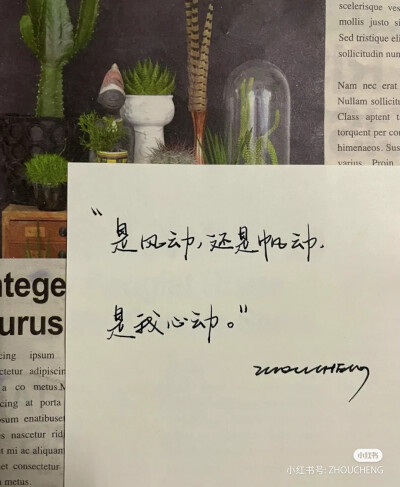 scelerisque ves
mollis justo si
Sed tristique eli
sollicitudin nun
Nam nec erat
Nullam sollicitu
Class aptent t
torquent per con
himenaeos. Sus
varius. Proin
"是风动,还是帆动,
是我心动。"
ZHOUCHENG
ntege
urus
cing ipsum
ctetur adipiscin
a co metus.M
cing at porta
psum enatibuset
es nascetur rid
t mi ac aliquam
et consectetur
metus.
小红书
小红书号: ZHOUCHENG